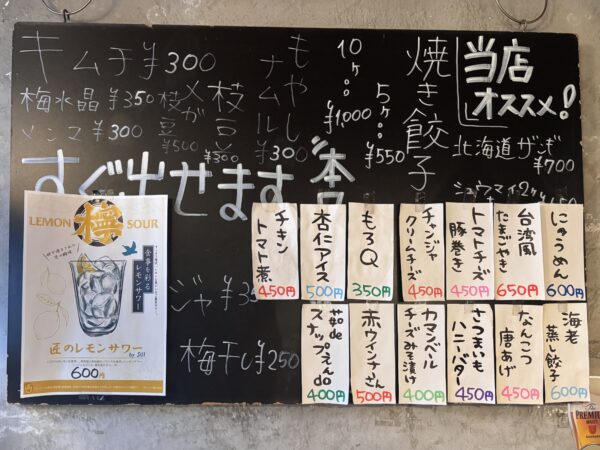 当店
オススメ!
北海道ザンギ
¥700
シュウマイ2ヶ
焼き餃子
5ヶ…¥550
10ヶ…¥1,000
もやし
ナムル
¥300
キムチ¥300
梅水晶 ¥350
メンマ ¥300
枝豆
¥300
メガ
枝豆
¥500
すぐ出せます
梅干し¥250
にゅうめん
600円
台湾風
たまごやき
650円
トマトチーズ
豚巻き
450円
チャンジャ
クリームチーズ
450円
もろQ
350円
杏仁アイス
500円
チキン
トマト煮
450円
海老
蒸し餃子
600円
なんこつ
唐あげ
450円
さつまいも
ハニーバター
450円
カマンベール
チーズみそ漬け
400円
赤ウインナーさん
500円
茹de
スナップえんdo
400円
LEMON 檸 SOUR
食事を彩る
レモンサワー
匠のレモンサワー
600円
The
PREMIUM
MALT'S